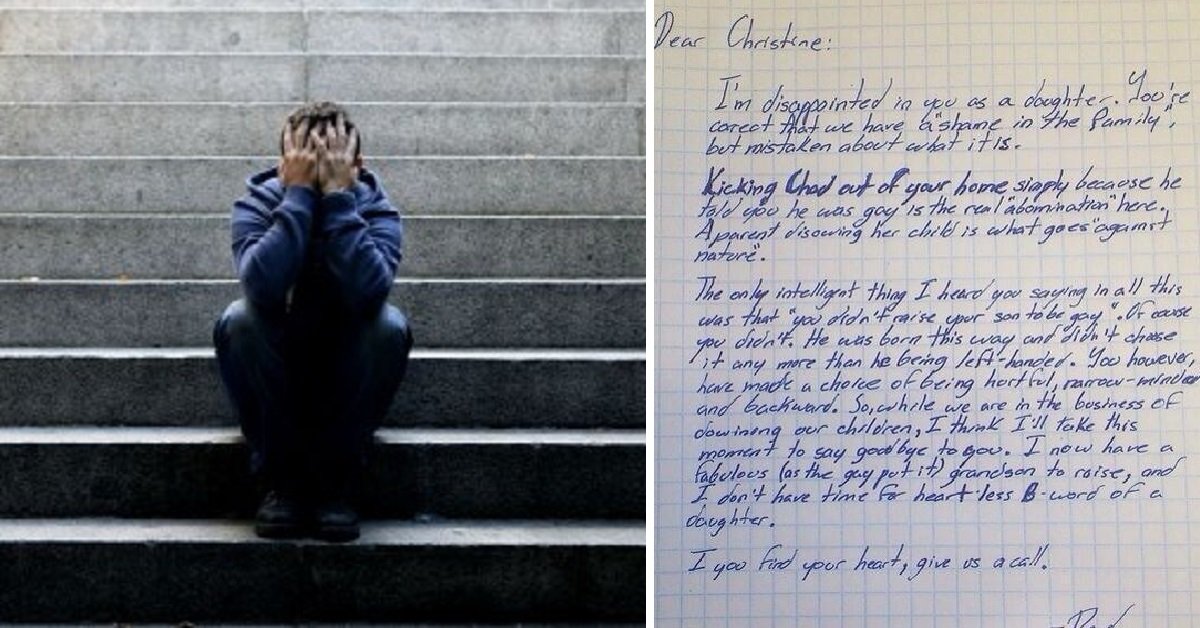 Dear Christine:
I'm disappointed in you as a daughter. You're
corect that we have a "shame in the family",
but mistaken about what it is.
Kicking Chad out of your home simply because he
told you he was gay is the real "abomination" here.
A parent disowing her child is what goes "against
nature".
The only intelligent thing I heard you saying in all this
was that "you didn't raise your son to be gay". Of couse
you didn't. He was born this way and didn't choose
it any more than he being left-handed. You however,
have made a choice of being hurtful, narrow-minded
and backward. So, while we are in the business of
disowning our children, I think I'll take this
moment to say goodbye to you. I now have a
fabulous (as the gay put it) grandson to raise, and
I don't have time for heart-less B-word of a
daughter.
I you find your heart, give us a call.
-Dad